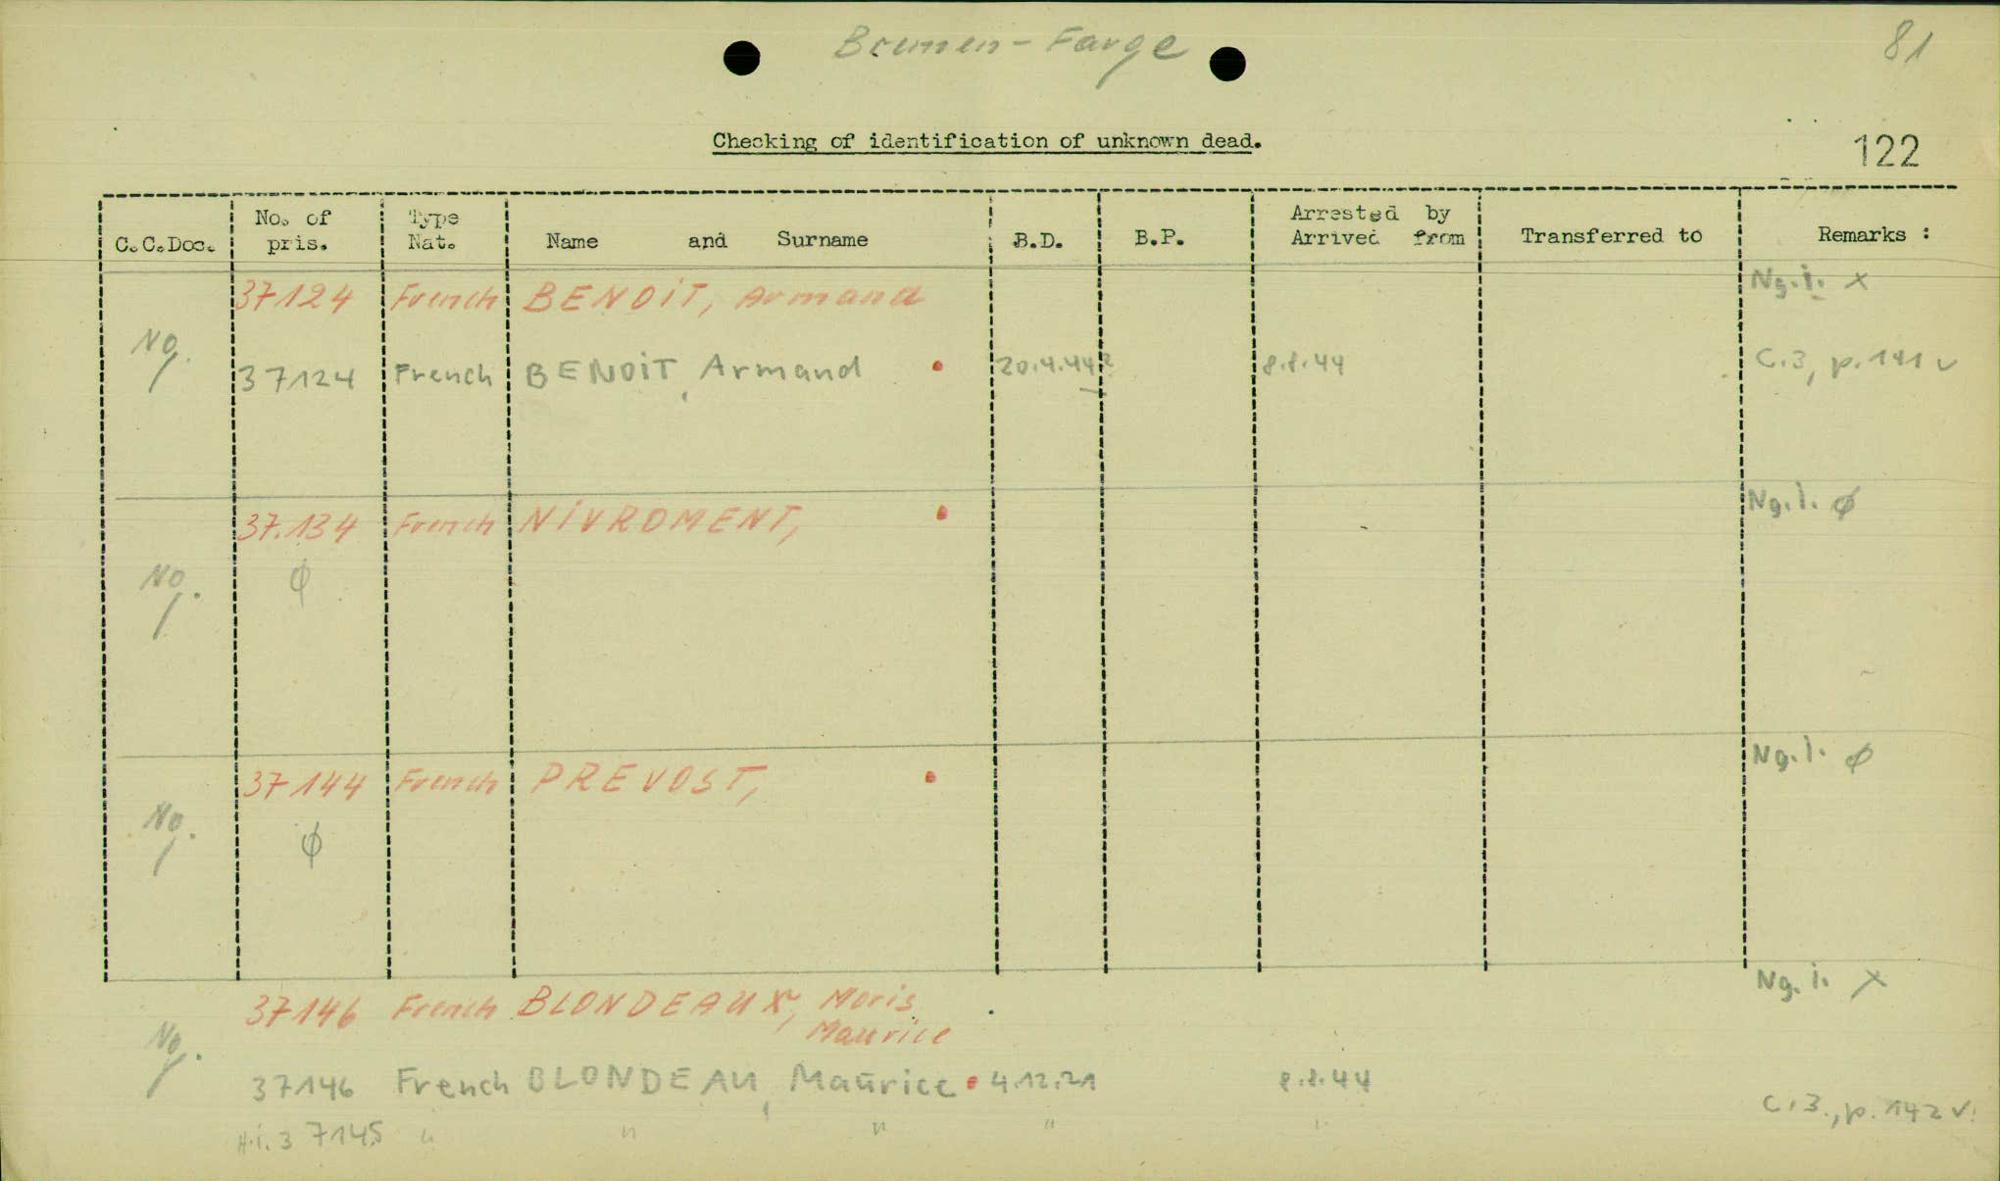 Bremen - Farge
81
Checking of identification of unknown dead.
122
C.C.Doc. No. of pris. Type Nat. Name and Surname B.D. B.P. Arrested by Arrived from Transferred to Remarks :
37124 French BENOIT, Armand Ng.i. x
No. 37124 French BENOIT, Armand 20.4.44? 8.8.44 C.3, p.141 v
37.134 French NIVROMENT, Ng.i. ϕ
No. ϕ
37144 French PREVOST, Ng.i. ϕ
No. ϕ
37146 French BLONDEAUX, Moris Ng.i. x
Maurice
No.
37146 French BLONDEAU, Maurice 4.12.21 8.8.44
C.3., p.142 v.
H.i. 37145 " " " "